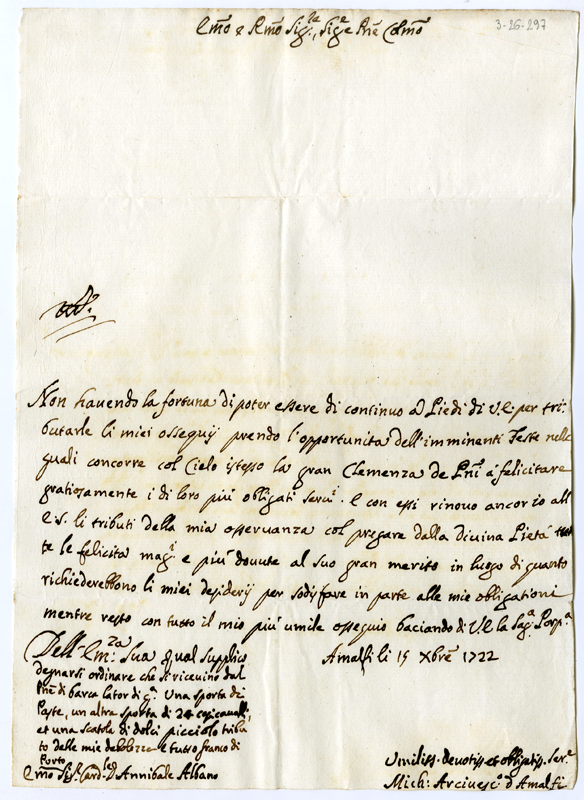 Emo e Rmo Sig.re, Sig.e Pne Colmo
3-26-297
Non havendo la fortuna di poter essere di continuo a Piedi di V.E. per tri-
butarle li miei ossequij prendo l'opportunita dell'imminenti Feste nelle
quali concorre col Cielo istesso la gran Clemenza de Pni á felicitare
gratiosamente i di loro più obligati servi. e con essi rinovo ancor'io all'
E.S. li tributi della mia osservanza col pregare dalla Divina Pietá tut-
te le felicita magi e più dovute al suo gran merito in luogo di quanto
richiederebbono li miei desiderij per sodisfare in parte alle mie obligationi
mentre resto con tutto il mio più umile ossequio baciando di V.E la Sag.a Porp.a
Amalfi li 15 Xbre 1722
Dell'Em.za Sua qual supplico
degnarsi ordinare che si ricevino dal
Pne di barca lator di q.a Una sporta di
Paste, un altra sporta di 24 casicavalli,
et una scatola di dolci picciolo tribu
to delle mie debolezze e tutto franco di
Porto
Emo Sig.r Card.le D Annibale Albano
Umiliss. devotiss. et obligatiss. Ser.e
Mich: Arcivesc.o d'Amalfi